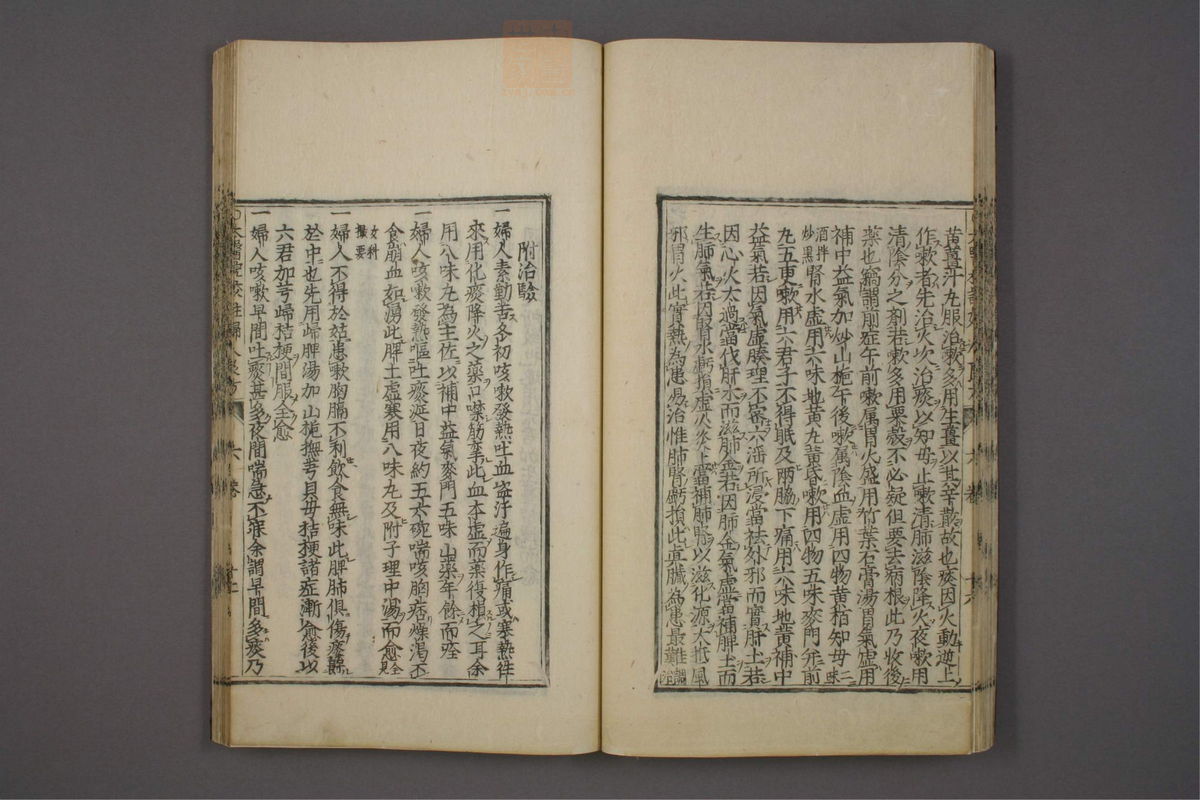 黃薑汁丸服治嗽多用生薑以其辛散故也痰因火動逆上
作嗽者先治火次治痰以知母止嗽清肺滋陰降火夜嗽用
清陰分之劑若嗽多用粟殻不必疑但要去病根此乃收後
藥也竊謂前症午前嗽属胃火盛用竹葉石膏湯胃氣虚用
補中益氣加炒山梔午後嗽属陰血虚用四物黄栢知母二味
酒拌炒黑腎水虚用六味地黄丸黄昏嗽用四物五味麥門并前
丸五更嗽用六君子不得眠及兩脇下痛用六味地黄補中
益氣若因氣虚腠理不密六淫所浸當祛外邪而實肝土若
因心火太過當伐肝木而滋肺金若因肺金氣虚當補脾土而
生肺氣若因腎水虧損虚火炎上當補肺腎以滋化源大抵風
邪胃火此實熱為患易治惟肺腎虧損此真臓為患最難調
六卷
附治驗
一婦人素勤苦冬初咳嗽發熱吐血盗汗遍身作痛或寒熱徃
來用化痰降火之藥口噤筋攣此血本虚而藥復損之耳余
用八味丸為主佐以補中益氣麥門五味山藥年餘而痊
一婦人咳嗽發熱嘔吐痰涎日夜約五六碗喘咳胸痞燥渴不
食崩血如湧此脾土虚寒用八味丸及附子理中湯而愈全見
女科撮要
一婦人不得於姑患嗽胸膈不利飲食無味此脾肺俱傷痰鬱
於中也先用歸脾湯加山梔撫芎貝母桔梗諸症漸愈後以
六君加芎歸桔梗間服全愈
一婦人咳嗽早間吐痰甚多夜間喘急不寐余謂早間多痰乃
六卷